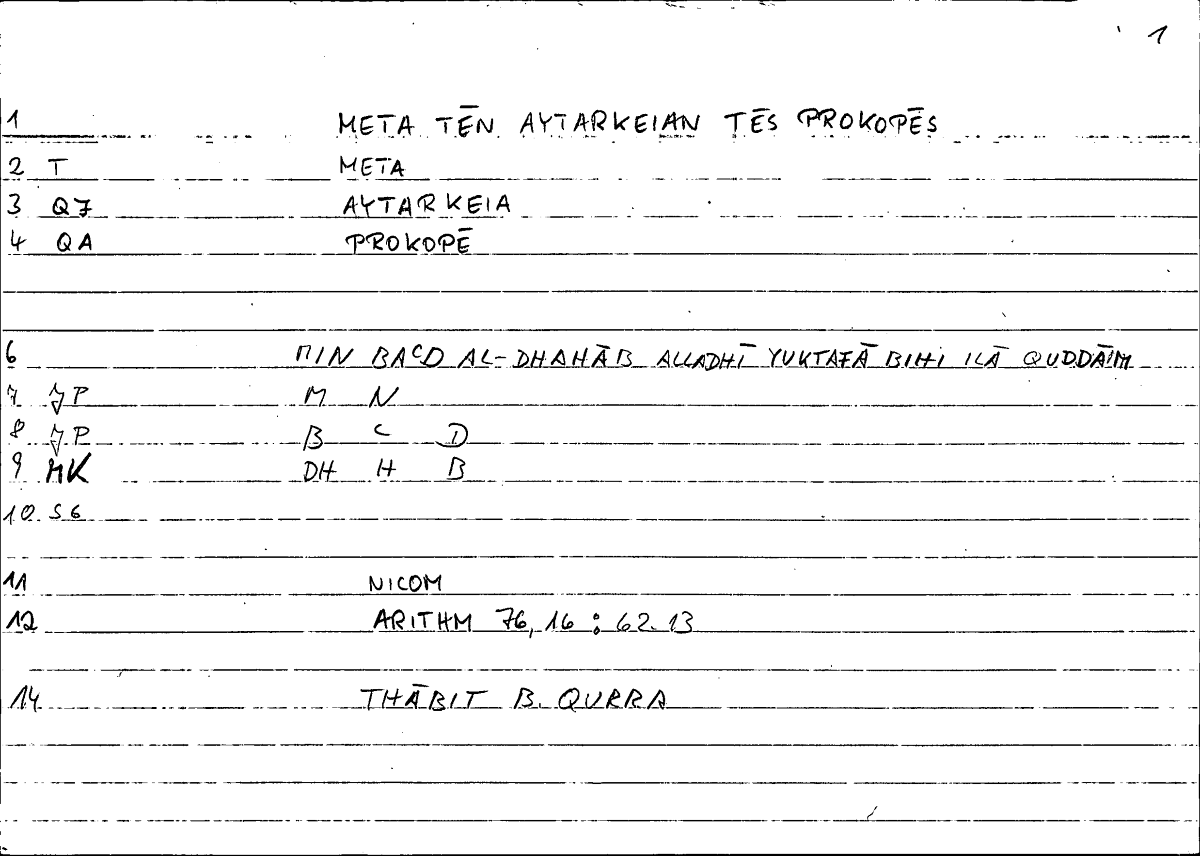 1
1 META TĒN AYTARKEIAN TĒS PROKOPĒS
2 T META
3 QJ AYTARKEIA
4 QA PROKOPĒ
6 MIN BAᶜD AL-DHAHĀB ALLADHĪ YUKTAFĀ BIHI ILĀ QUDDĀIM
7 P M N
8 P B ᶜ D
9 MK DH H B
10 S6
11 NICOM
12 ARITHM 76,16 : 62.13
14 THĀBIT B. QURRA